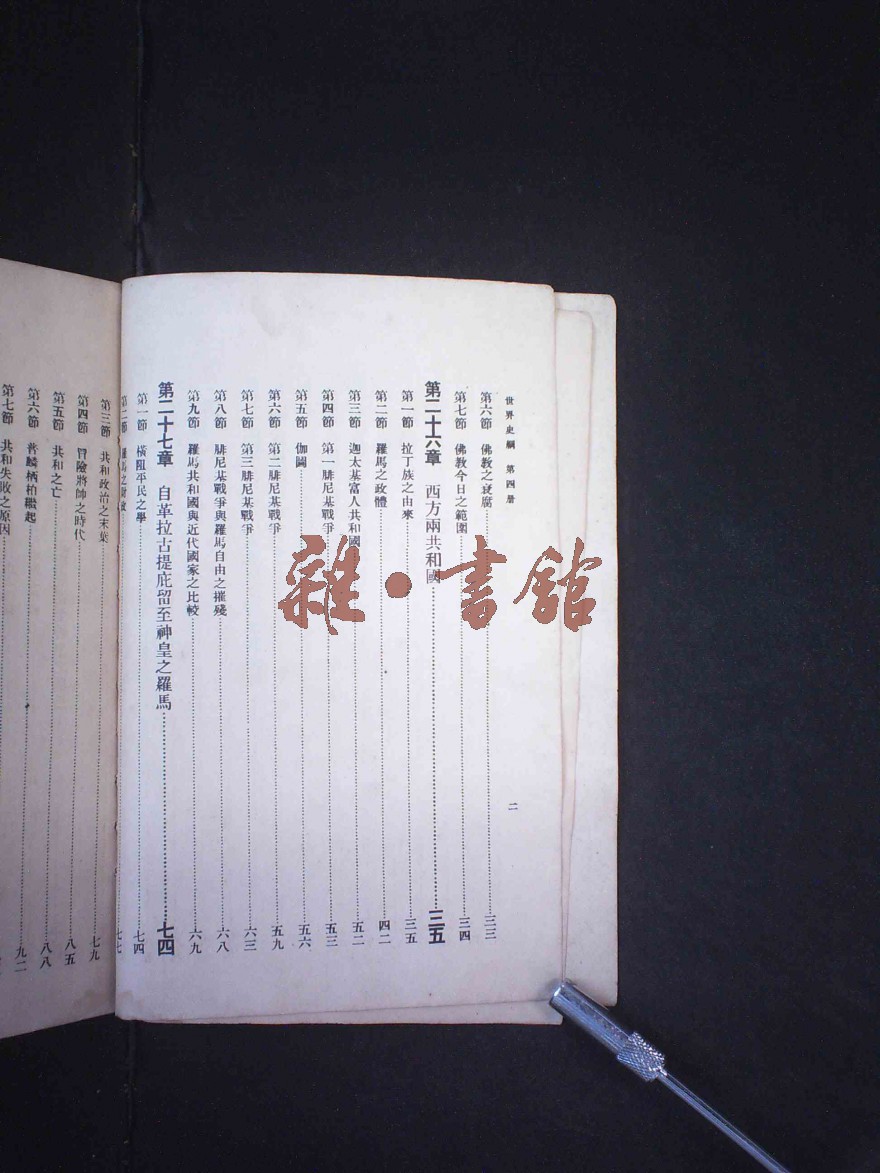 世界史綱 第四册
二
第六節 佛教之衰腐 三三
第七節 佛教今日之範圍 三四
第二十六章 西方兩共和國 三五
第一節 拉丁族之由來 三五
第二節 羅馬之政體 四二
第三節 迦太基富人共和國 五二
第四節 第一腓尼基戰爭 五三
第五節 伽圖 五六
第六節 第二腓尼基戰爭 五九
第七節 第三腓尼基戰爭 六三
第八節 腓尼基戰爭與羅馬自由之摧殘 六八
第九節 羅馬共和國與近代國家之比較 六九
第二十七章 自革拉古提庇留至神皇之羅馬 七四
第一節 橫阻平民之舉 七四
第二節 羅馬之財政 七七
第三節 共和政治之末葉 七九
第四節 冒險將帥之時代 八五
第五節 共和之亡 八八
第六節 普麟栖柏繼起 九二
第七節 共和失敗之原因
雜·書館